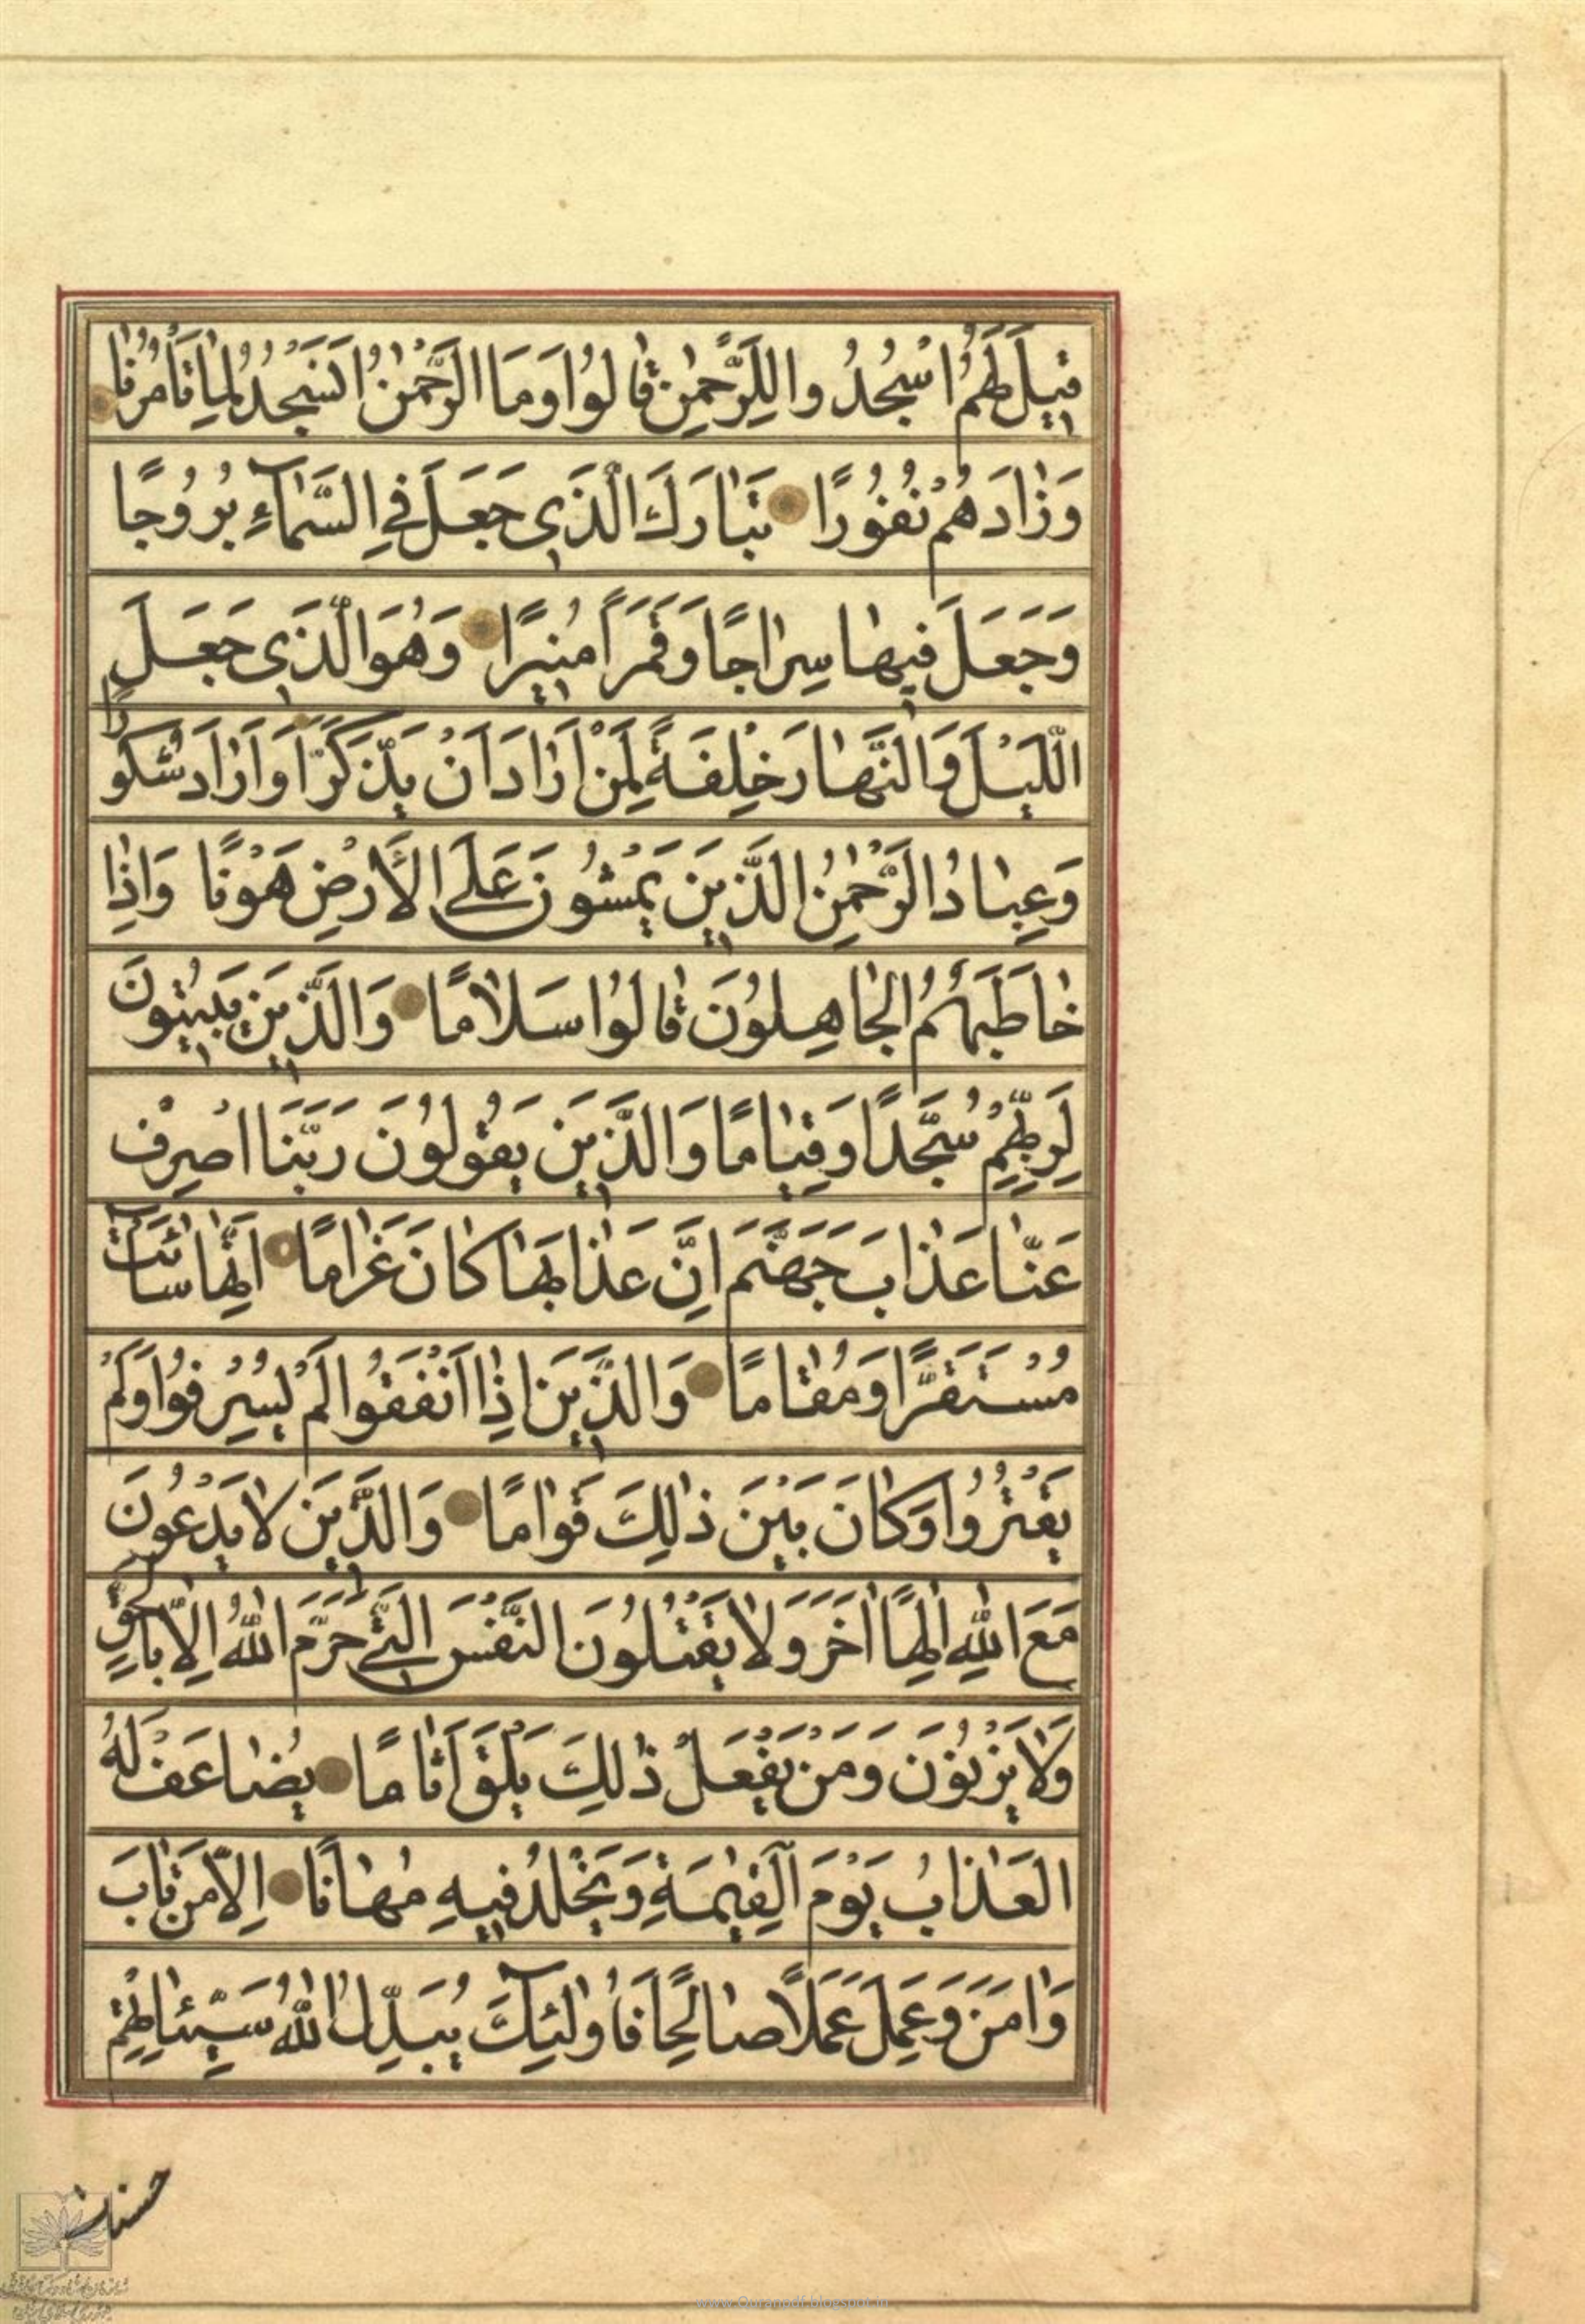 قيلَ لَهُمُ اسْجُدُوا لِلرَّحْمٰنِ قٰالُوا وَمَا الرَّحْمٰنُ اَنَسْجُدُ لِمٰا تَأْمُرُنٰا
وَزٰادَهُمْ نُفُورًا تَبٰارَكَ الَّذَي جَعَلَ فِي السَّمٰاءِ بُرُوجًا
وَجَعَلَ فيهٰا سِرٰاجًا وَقَمَرًا مُنيرًا وَهُوَ الَّذَي جَعَلَ
اللَّيْلَ وَالنَّهٰارَ خِلْفَةً لِمَنْ اَرٰادَ اَنْ يَذَّكَّرَ اَوْ اَرٰادَ شُكُورًا
وَعِبٰادُ الرَّحْمٰنِ الَّذَينَ يَمْشُونَ عَلَى الْاَرْضِ هَوْنًا وَاِذٰا
خٰاطَبَهُمُ الجٰاهِلُونَ قٰالُوا سَلٰامًا وَالَّذَينَ يَبيتُونَ
لِرَبِّهِمْ سُجَّدًا وَقِيٰامًا وَالَّذَينَ يَقُولُونَ رَبَّنَا اصْرِفْ
عَنّٰا عَذٰابَ جَهَنَّمَ اِنَّ عَذٰابَهٰا كٰانَ غَرٰامًا اِنَّهٰا سٰائَتْ
مُسْتَقَرًّا وَمُقٰامًا وَالَّذَينَ اِذٰا اَنْفَقُوا لَمْ يُسْرِفُوا وَلَمْ
يَقْتُرُوا وَكٰانَ بَيْنَ ذٰلِكَ قَوٰامًا وَالَّذَينَ لٰا يَدْعُونَ
مَعَ اللّٰهِ اِلٰهًا اٰخَرَ وَلٰا يَقْتُلُونَ النَّفْسَ الَّتَي حَرَّمَ اللّٰهُ اِلّٰا بِالْحَقِّ
وَلٰا يَزْنُونَ وَمَنْ يَفْعَلْ ذٰلِكَ يَلْقَ اَثٰامًا يُضٰاعَفْ لَهُ
العَذٰابُ يَوْمَ الْقِيٰمَةِ وَيَخْلُدْ فيهِ مُهٰانًا اِلّٰا مَنْ تٰابَ
وَاٰمَنَ وَعَمِلَ عَمَلًا صٰالِحًا فَاُولٰئِكَ يُبَدِّلُ اللّٰهُ سَيِّئٰاتِهِمْ
حسنات
www.Quranpdf.blogspot.in